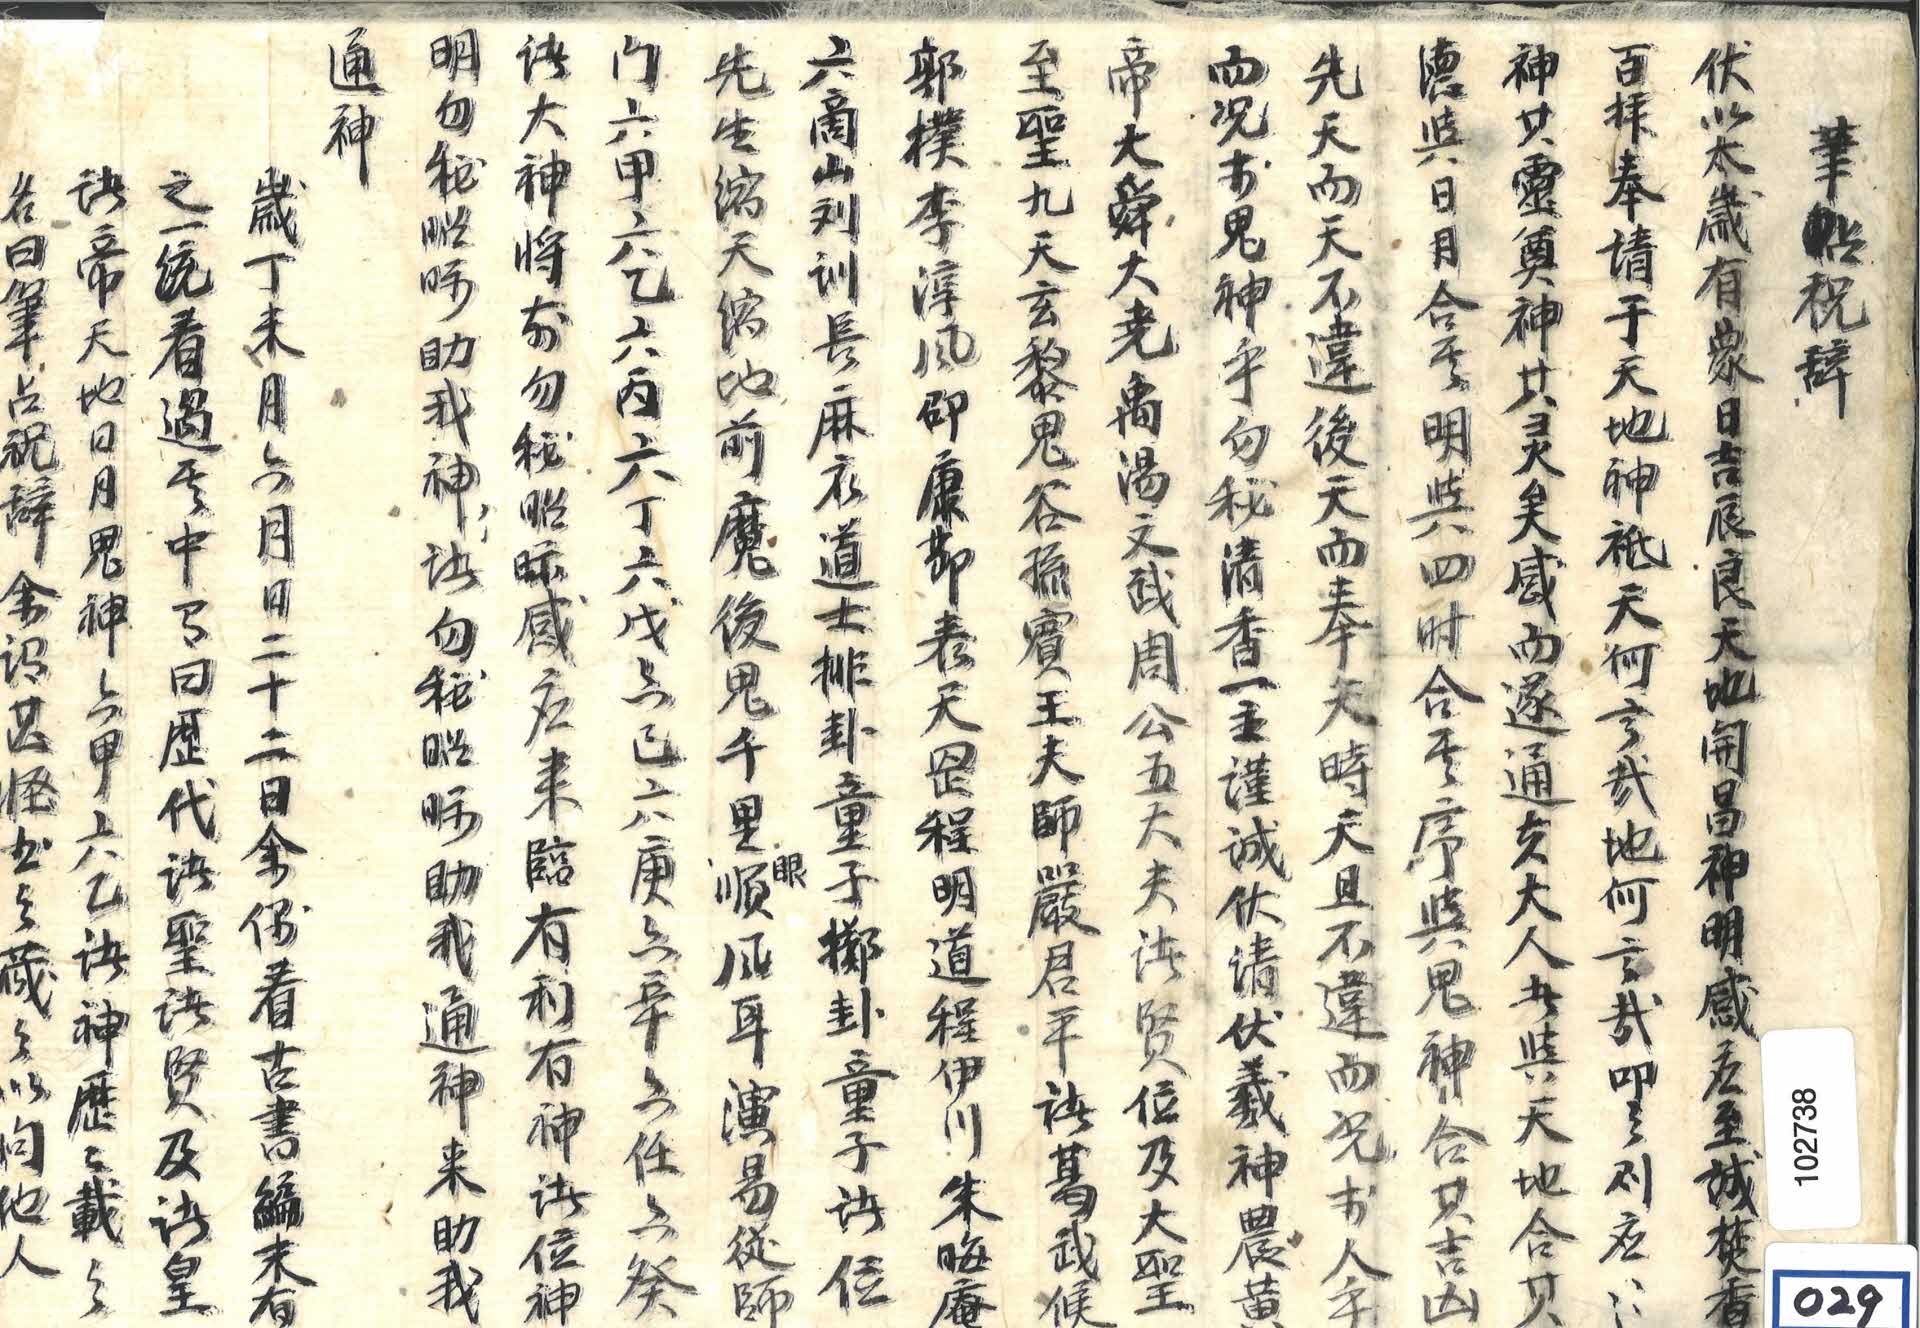 筆帖祝辞
伏以太歲有衆日吉辰良天地開昌神明感应至誠焚香
百拜奉请于天地神祗天何言哉地何言哉叩之則应
神其靈奠神其灵矣感而遂通夫大人者與天地合其
德與日月合其明與四时合其序與鬼神合其吉凶
先天而天不違後天而奉天時天且不違而况於人乎
而况於鬼神乎勿秘清香一主谨诚伏请伏羲神農黄
帝大舜大尭禹湯文武周公五大夫诸贤位及大聖
至聖九天玄黎鬼谷孫賓王夫師嚴君平诸葛武候
郭樸李淳風邵康節袁天罡程明道程伊川朱晦庵
六商山刘训長麻衣道士排卦童子擲卦童子诸位
先生縮天縮地前魔後鬼千里眼順风耳演易従師
门六甲六乙六丙六丁六戊六己六庚六辛六任六癸
诸大神将前勿秘昭眎感应来臨有利有神诸位神
明勿秘昭眎助我神々诸勿秘昭眎助我通神来助我
通神
歲丁未月六月日二十二日余偶看古書編末有
之一统看過其中有曰歷代诸聖诸贤及诸皇
诸帝天地日月鬼神六甲六乙诸神歷々載之
名曰筆占祝辞余谓甚怪书之藏之以向他人
102738
029